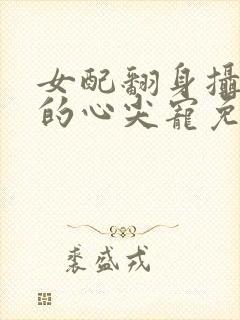 女配翻身攝
的心尖寵免
裘盛戎